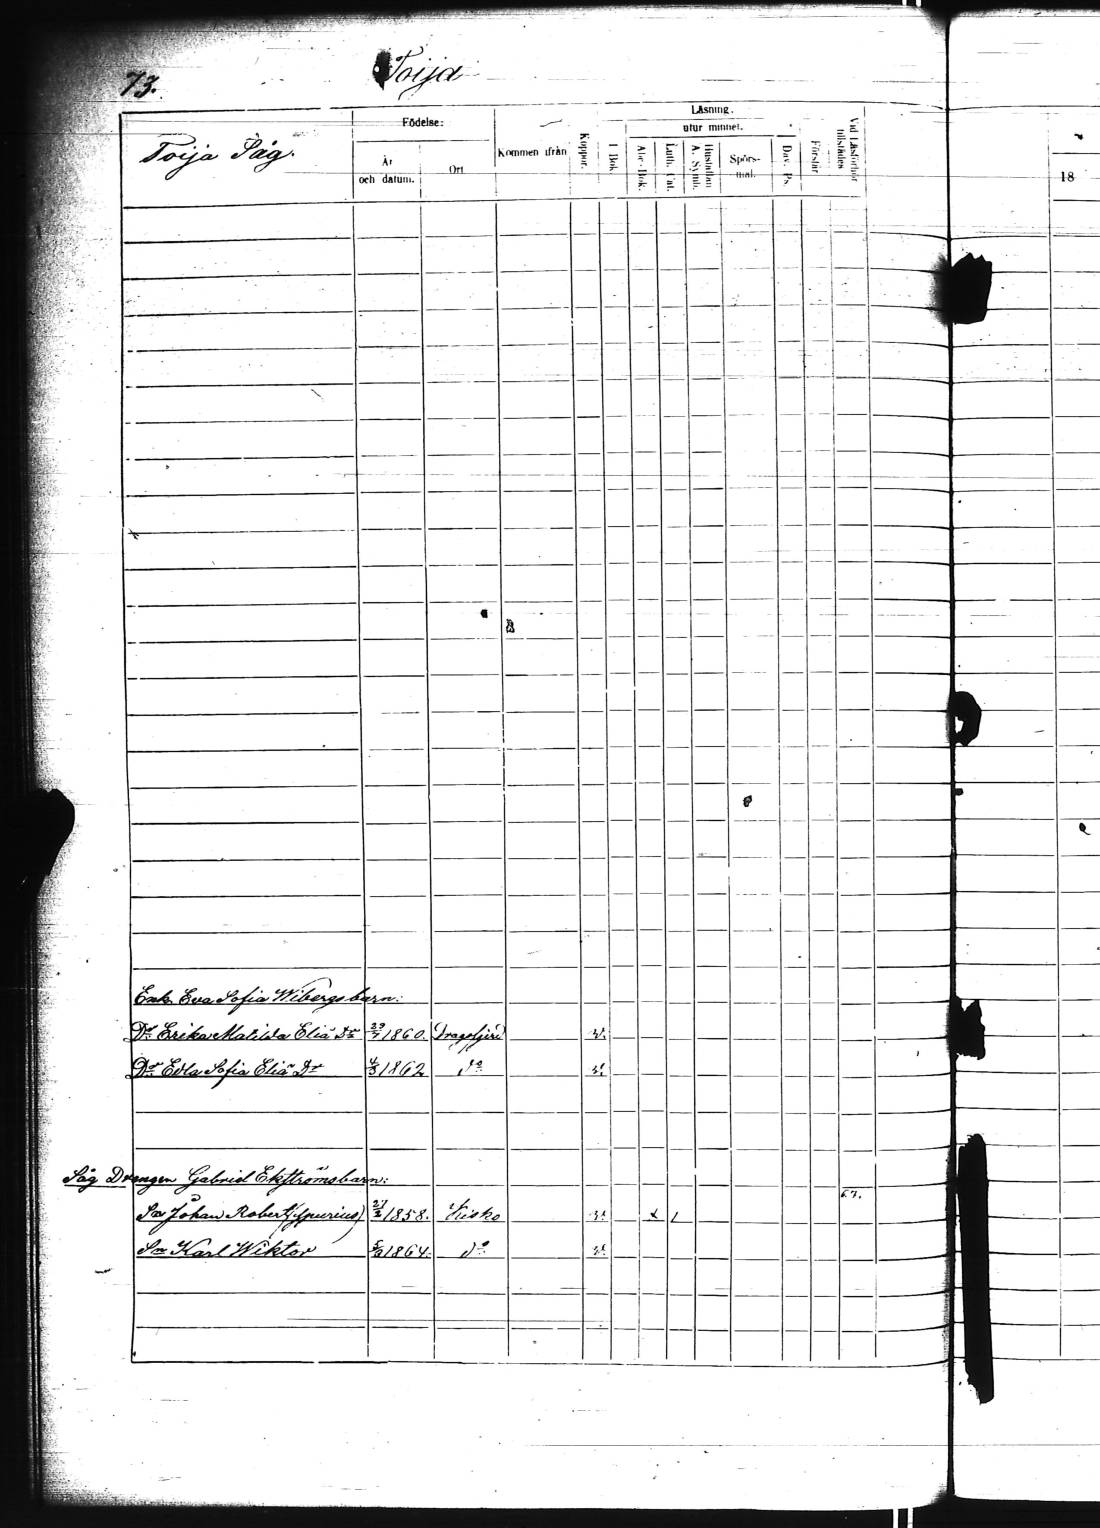 73.
Toija
Toija Såg.
Födelse:
År
och datum.
Ort
Kommen ifrån
Koppor.
Läsning.
I Bok.
utur minnet.
Abc-Bok.
Luth. Cat.
Hustaflan
A. Symb.
Spörs-
mål.
Dav. Ps.
Förstår
Vid Läsförhör
tillstädes
18
Enk. Eva Sofia Wibergs barn:
Dr. Erika Matilda Eliæ Dr 29/7 1860. Dragsfjerd v.
Dr. Edla Sofia Eliæ Dr 4/3 1862 do v.
Såg Drengen Gabriel Ekströms barn:
67.
Son Johan Robert (Spurius) 27/2 1858. Kisko v. x 1
Son Karl Wiktor 1864. do v.